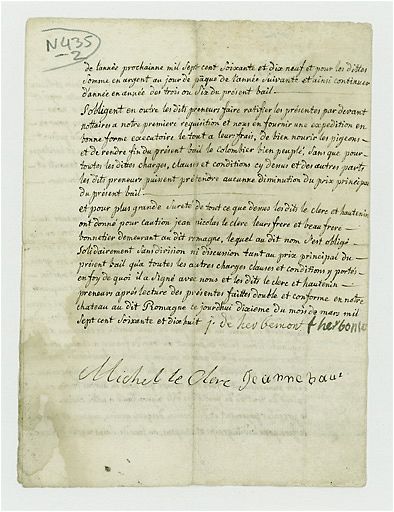 N435
2
de lannés prochainne mil Sept cent Soixante et dix neuf et pour les dittes
Somme en argent au jour de pâque de lannée Suivante et ainsi continuer
dannée en année des trois ou Six du present bail.
Sobligent en outre les dits preneurs faire ratifier les présentes par devant
nottaires a notre premiere requisition et nous en fournir une expédition en
bonne forme executoire le tout a leur frais, de bien nourir les pigeons
et de rendre fin du présent bail le colombier bien peuplé, Sans que pour
toutes les dittes charges, clauses et conditions cy devus et des autres parts
les dits preneurs puissent prétendre aucunne diminution du prix principas
du present bail
et pour plus grande Sureté de tout ce que devus les dits le clerc et hautenin
ont donné pour caution jean nicolas le clerc leur frere et beau frere
bonnetier demeurant au dit romagne, lequel au dit nom S'est obligé
Solidairement Sans division ni discusion tant au prix principal du
présent bail qua toutes les autres charges clauses et conditions y portés
en foy de quoi il a Signé avec nous et les dits le clerc et hautenin
preneurs après lecture des présentes faittes double et conforme en notre
chateau au dit Romagne ce jourdhui dixieme du mois de mars mil
Sept cent Soixante et dix huit j. de herbemon
Michel le Clerc Jeanne